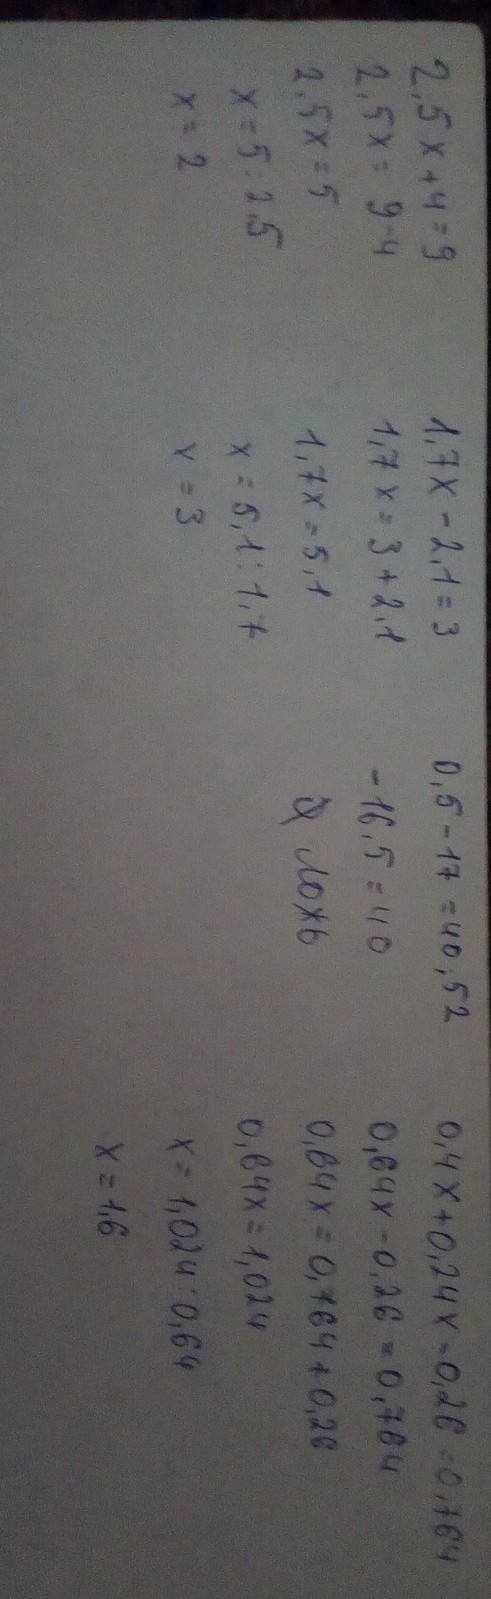 2,5x+4=9
2,5x=9-4
2,5x=5
x=5:2,5
x=2
1,7x-2,1=3
1,7x=3+2,1
1,7x=5,1
x=5,1:1,7
x=3
0,5-17=40,52
-16,5=40
ложь
0,4x+0,24x-0,26=0,764
0,64x-0,26=0,764
0,64x=0,764+0,26
0,64x=1,024
x=1,024:0,64
x=1,6